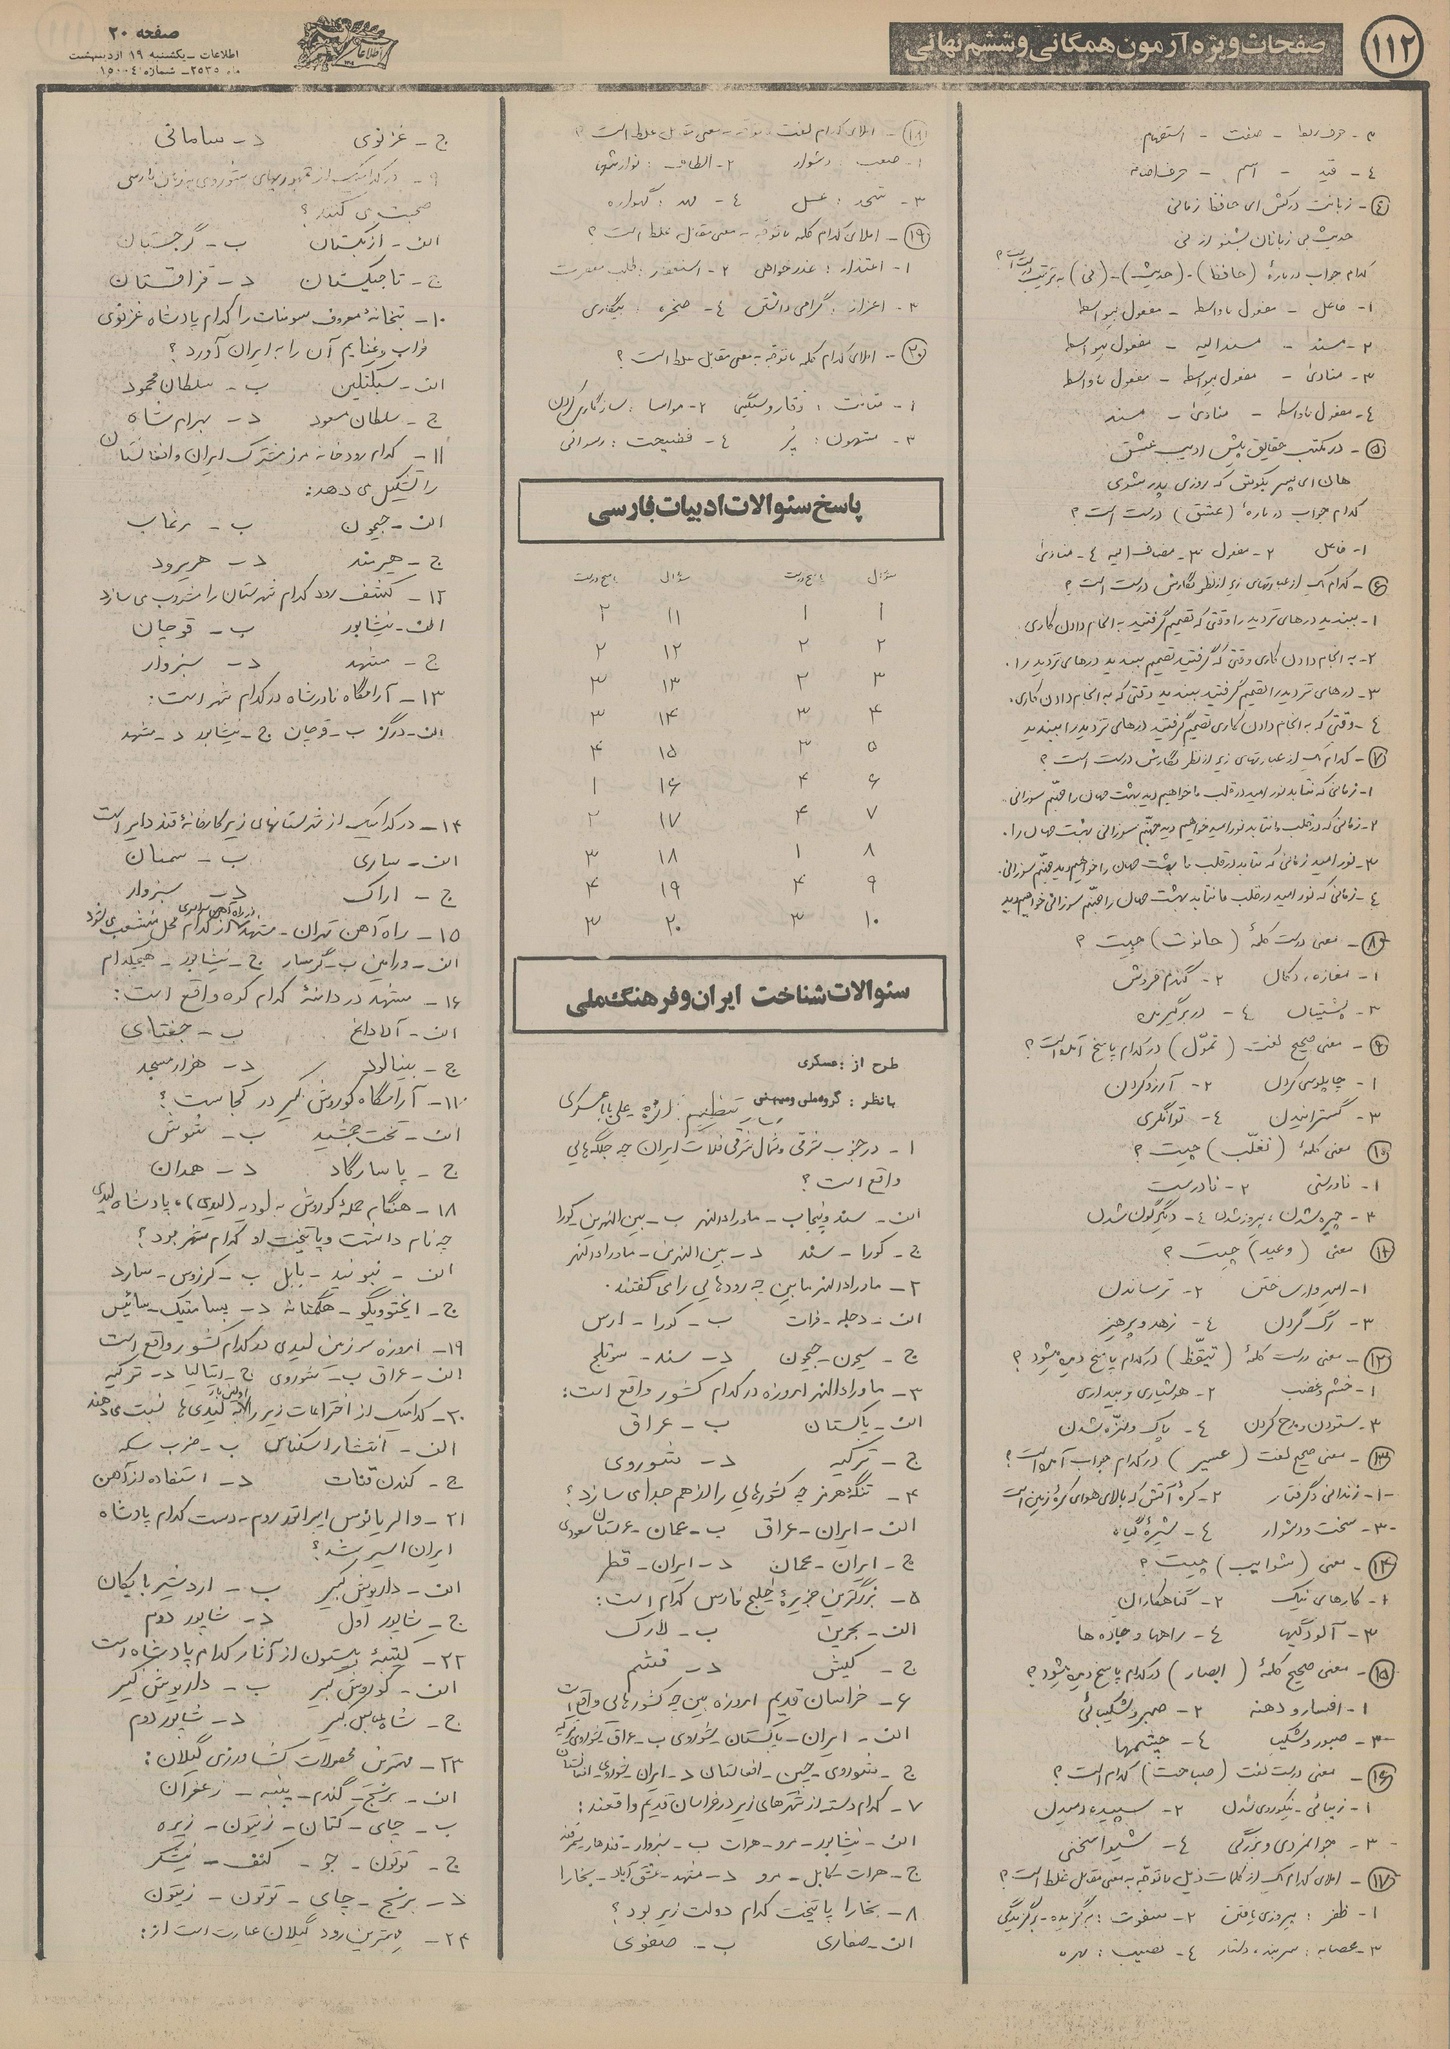 ۱۱۲
صفحات ویژه آزمون همگانی و ششم نهائی
صفحه ۲۰
اطلاعات ـ یکشنبه ۱۹ اردیبهشت
ماه ۲۵۳۵ ـ شماره ۱۵۰۰۴
۳ـ حرف ربط - صفت - استفهام
٤ـ قید - اسم - حرف اضافه
٤ـ زبانت درکش ای حافظ زمانی
حدیث بی زبانان بشنو از نی
کدام جواب دربارهٔ (حافظ) - (حدیث) - (نی) به ترتیب درست است؟
۱- فاعل - مفعول باواسطه - مفعول بیواسطه
۲- مسند - مسندالیه - مفعول بیواسطه
۳- منادی - مفعول بیواسطه - مفعول باواسطه
٤- مفعول باواسطه - منادی - مسند
۵- در مکتب حقایق پیش ادیب عشق
هان ای پسر بکوش که روزی پدر شوی
کدام جواب دربارهٔ (عشق) درست است؟
۱- فاعل ۲- مفعول ۳- مضاف الیه ٤- منادی
۶- کدام یک از عبارتهای زیر از نظر نگارش درست است؟
۱- ببندید درهای تردید را وقتی که تصمیم گرفتید به انجام دادن کاری.
۲- به انجام دادن کاری وقتی که گرفتید تصمیم ببندید درهای تردید را.
۳- درهای تردید را تصمیم گرفتید ببندید وقتی که به انجام دادن کاری.
٤- وقتی که به انجام دادن کاری تصمیم گرفتید درهای تردید را ببندید
۷- کدام یک از عبارتهای زیر از نظر نگارش درست است؟
۱- زمانی که نتابد نور امید در قلب ما خواهیم دید بهشت جهان را جهنّم سوزانی
۲- زمانی که در قلب ما نتابد نور امید خواهیم دید جهنّم سوزانی بهشت جهان را.
۳- نور امید زمانی که نتابد در قلب ما بهشت جهان را خواهیم دید جهنّم سوزانی.
٤- زمانی که نور امید در قلب ما نتابد بهشت جهان را جهنّم سوزانی خواهیم دید
۸- معنی درست کلمهٔ (حانوت) چیست؟
۱- مغازه، دکان ۲- گندم فروش
۳- پشتیبان ٤- دربرگیرنده
۹- معنی صحیح لغت (تموّل) در کدام پاسخ آمده است؟
۱- چاپلوسی کردن ۲- آرزو کردن
۳- گسترانیدن ٤- توانگری
۱۰- معنی کلمهٔ (تغلّب) چیست؟
۱- نادرستی ۲- نادرست
۳- چیره شدن، پیروز شدن ٤- دگرگون شدن
۱۱- معنی (وعید) چیست؟
۱- امیدوار ساختن ۲- ترساندن
۳- رگ گردن ٤- زهد و پرهیز
۱۲- معنی درست کلمهٔ (تیقّظ) در کدام پاسخ دیده میشود؟
۱- خشم و غضب ۲- هوشیاری و بیداری
۳- ستودن و مدح کردن ٤- پاک و منزّه شدن
۱۳- معنی صحیح لغت (عسیر) در کدام جواب آمده است؟
۱- زندانی و گرفتار ۲- کرهٔ آتش که بالای هوای کرهٔ زمین است
۳- سخت و دشوار ٤- شیرهٔ گیاه
۱۴- معنی (شوایب) چیست؟
۱- کارهای نیک ۲- گناهکاران
۳- آلودگیها ٤- راهها و جاده ها
۱۵- معنی صحیح کلمهٔ (ابصار) در کدام پاسخ دیده میشود؟
۱- افسار و دهنه ۲- صبر و شکیبائی
۳- صبور و شکیب ٤- چشمها
۱۶- معنی درست لغت (صباحت) کدام است؟
۱- زیبائی - نیکوروی شدن ۲- سپیده دمیدن
۳- جوانمردی و بزرگی ٤- شیوا سخنی
۱۷- املای کدام یک از کلمات ذیل با توجّه به معنی مقابل غلط است؟
۱- ظفر : پیروزی یافتن ۲- صفوت : برگزیده - برگزیدگی
۳- عصابه : سربند، دستار ٤- نصیب : بهره
۱۸- املای کدام لغت با توجه به معنی مقابل غلط است؟
۱- صعب : دشوار ۲- الطاف : نوازشها
۳- شحد : عسل ٤- مهد : گهواره
۱۹- املای کدام کلمه با توجّه به معنی مقابل غلط است؟
۱- اعتذار : عذرخواهی ۲- استغفار : طلب مغفرت
۳- اعزاز : گرامی داشتن ٤- صخره : بیگاری
۲۰- املای کدام کلمه با توجّه به معنی مقابل غلط است؟
۱- متانت : وقار و سنگینی ۲- مواسا : سازگاری کردن
۳- مشهون : پُر ٤- فضیحت : رسوائی
پاسخ سئوالات ادبیات فارسی
سئوال پاسخ درست سئوال پاسخ درست
۱ ۱ ۱۱ ۲
۲ ۲ ۱۲ ۲
۳ ۲ ۱۳ ۳
۴ ۳ ۱۴ ۳
۵ ۳ ۱۵ ۴
۶ ۴ ۱۶ ۱
۷ ۴ ۱۷ ۲
۸ ۱ ۱۸ ۳
۹ ۴ ۱۹ ۴
۱۰ ۳ ۲۰ ۳
سئوالات شناخت ایران و فرهنگ ملی
طرح از : عسکری
با نظر : گروه ملی و میهنی
تنظیم از: علی بابا عسکری
۱- در جنوب شرقی و شمال شرقی فلات ایران چه جلگه هایی
واقع است؟
الف- سند و پنجاب - ماوراءالنهر ب- بین النهرین - کورا
ج- کورا - سند د- بین النهرین - ماوراءالنهر
۲- ماوراءالنهر مابین چه رودهایی را می گفتند.
الف- دجله - فرات ب- کورا - ارس
ج- سیحون - جیحون د- سند - سوتلج
۳- ماوراءالنهر امروزه در کدام کشور واقع است:
الف- پاکستان ب- عراق
ج- ترکیه د- شوروی
۴- تنگهٔ هرمز چه کشورهایی را از هم جدا می سازد؟
الف- ایران - عراق ب- عمان - عربستان سعودی
ج- ایران - عمان د- ایران - قطر
۵- بزرگترین جزیرهٔ خلیج فارس کدام است:
الف- بحرین ب- لارک
ج- کیش د- قشم
۶- خراسان قدیم امروزه بین چه کشورهایی واقع است
الف- ایران - پاکستان - شوروی ب- عراق - شوروی - ترکیه
ج- شوروی - چین - افغانستان د- ایران - شوروی - افغانستان
۷- کدام دسته از شهرهای زیر در خراسان قدیم واقعند:
الف- نیشابور - مرو - هرات ب- سبزوار - قندهار - سمرقند
ج- هرات - کابل - مرو د- مشهد - عشق آباد - بخارا
۸- بخارا پایتخت کدام دولت زیر بود؟
الف- صفاری ب- صفوی
ج- غزنوی د- سامانی
۹- در کدامیک از جمهوریهای شوروی به زبان فارسی
صحبت می کنند؟
الف- ازبکستان ب- گرجستان
ج- تاجیکستان د- قزاقستان
۱۰- بتخانهٔ معروف سومنات را کدام پادشاه غزنوی
خراب و غنایم آن را به ایران آورد؟
الف- سبکتکین ب- سلطان محمود
ج- سلطان مسعود د- بهرام شاه
۱۱- کدام رودخانه مرز مشترک ایران و افغانستان
را تشکیل می دهد:
الف- جیحون ب- مرغاب
ج- هیرمند د- هریرود
۱۲- کشف رود کدام شهرستان را مشروب می سازد
الف- نیشابور ب- قوچان
ج- مشهد د- سبزوار
۱۳- آرامگاه نادرشاه در کدام شهر است:
الف- درگز ب- قوچان ج- نیشابور د- مشهد
۱۴- در کدامیک از شهرستانهای زیر کارخانهٔ قند دایر است
الف- ساری ب- سمنان
ج- اراک د- سبزوار
۱۵- راه آهن تهران - مشهد از راه آهن سراسری از کدام محل منشعب می شود
الف- ورامین ب- گرمسار ج- نیشابور د- هیچکدام
۱۶- مشهد در دامنهٔ کدام کوه واقع است:
الف- آلاداغ ب- جغتای
ج- بینالود د- هزار مسجد
۱۷- آرامگاه کوروش کبیر در کجاست؟
الف- تخت جمشید ب- شوش
ج- پاسارگاد د- همدان
۱۸- هنگام حملهٔ کوروش به لودیه (لیدی)، پادشاه لیدی
چه نام داشت و پایتخت او کدام شهر بود؟
الف- نبونید - بابل ب- کرزوس - سارد
ج- ایختوویگو - هگمتانه د- پسامتیک - سائیس
۱۹- امروزه سرزمین لیدی در کدام کشور واقع است
الف- عراق ب- شوروی ج- ایتالیا د- ترکیه
۲۰- کدامیک از اختراعات زیر را اولین بار به لیدی ها نسبت می دهند
الف- انتشار اسکناس ب- ضرب سکه
ج- کندن قنات د- استفاده از آهن
۲۱- والریانوس امپراتور روم به دست کدام پادشاه
ایران اسیر شد؟
الف- داریوش کبیر ب- اردشیر بابکان
ج- شاپور اول د- شاپور دوم
۲۲- کتیبهٔ بیستون از آثار کدام پادشاه است
الف- کوروش کبیر ب- داریوش کبیر
ج- شاه عباس کبیر د- شاپور دوم
۲۳- مهمترین محصولات کشاورزی گیلان:
الف- برنج - گندم - پنبه - زعفران
ب- چای - کتان - زیتون - زیره
ج- توتون - جو - کنف - نیشکر
د- برنج - چای - توتون - زیتون
۲۴- مهمترین رود گیلان عبارت است از: